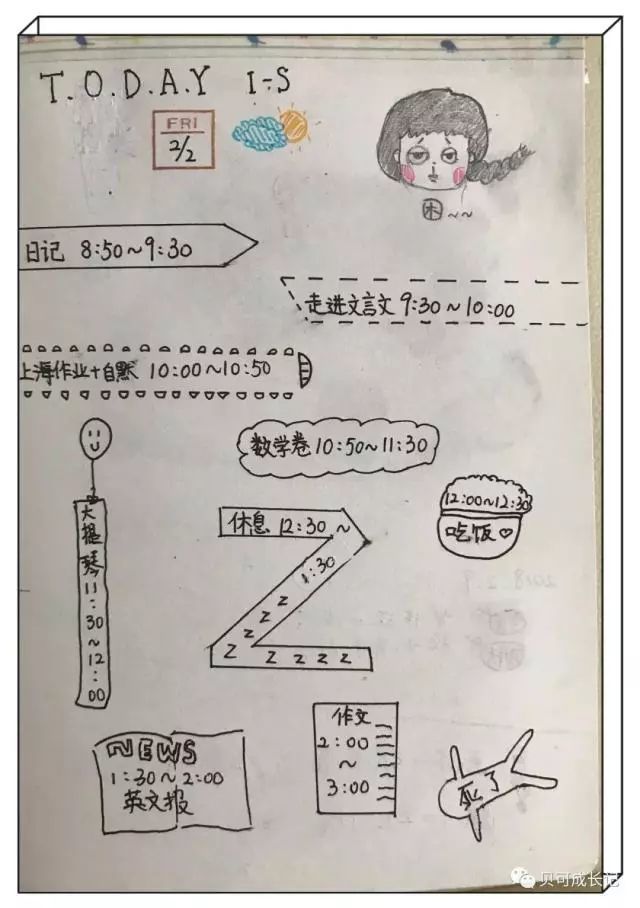 T.O.D.A.Y I-S
FRI
2/2
困~~
日记 8:50~9:30
走进文言文 9:30~10:00
上海作业+自默 10:00~10:50
数学卷 10:50~11:30
大提琴 11:30~12:00
12:00~12:30
吃饭♡
休息 12:30~
1:30
z
z
z
z z z z z
NEWS
1:30~2:00
英文报
作文
2:00
~
3:00
死了
贝可成长记